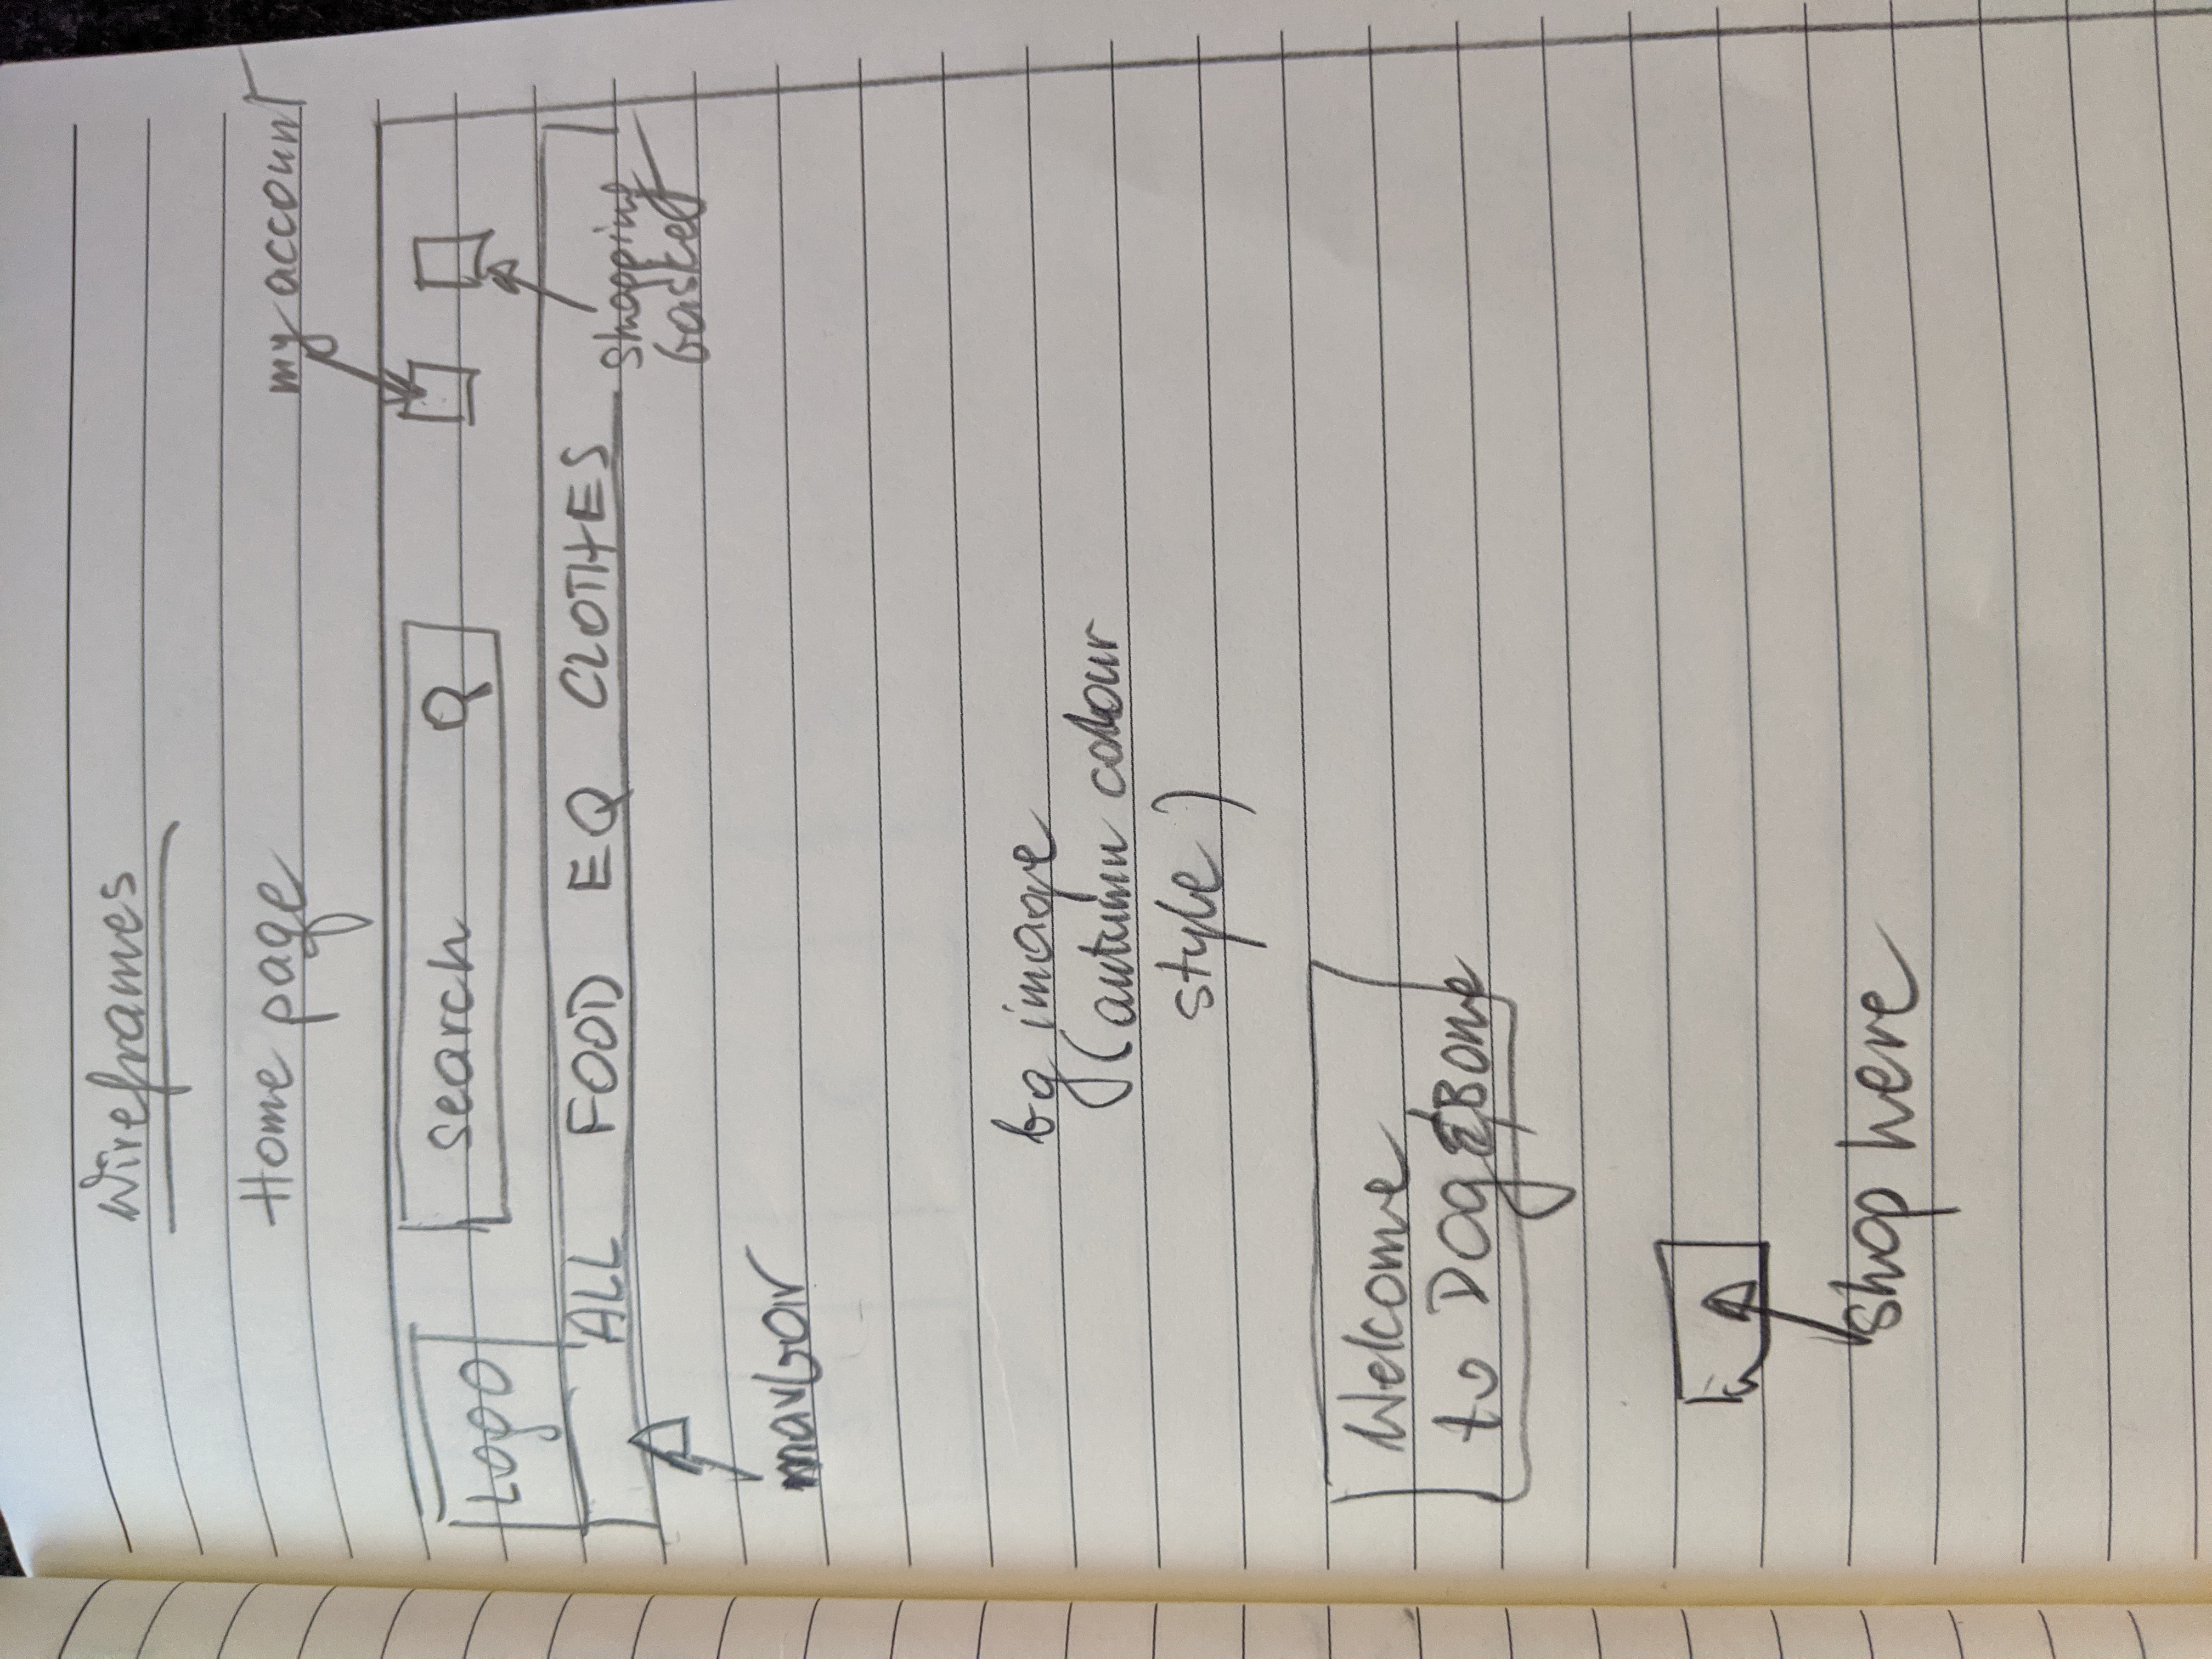 Wireframes
Home page
my account
Logo
search
ALL FOOD EQ CLOTHES
shopping
basket
navbar
bg image
(autumn colour
style)
Welcome
to Dog & Bone
shop here